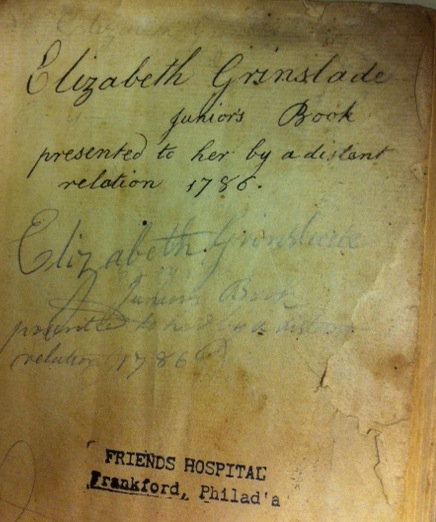 Elizabeth Grinslade
juniors Book
presented to her by a distant
relation 1786.
Elizabeth Grinslade
Juniors Book
presented to her by a distant
relation 1786
FRIENDS HOSPITAL
Frankford, Philad'a